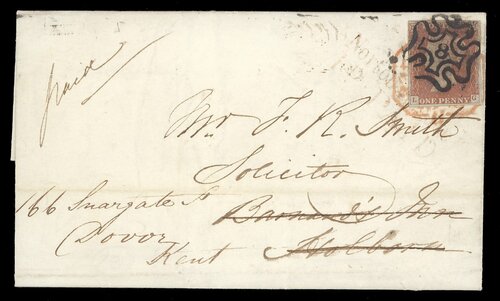 paid
8
ONE PENNY
Mr F. R. Smith
Solicitor
Barnard's Inn
Holborn
166 Snargate St
Dovor
Kent